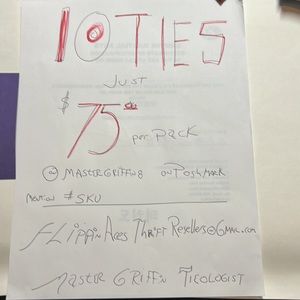 10 TIES
JUST
$ 75 per PACK
@ MASTERGRIFFIN8 ON POSHMARK
MENTION #SKU
FLippin Aces Thrift Resellers@Gmail.com
Master Griffin Tieologist